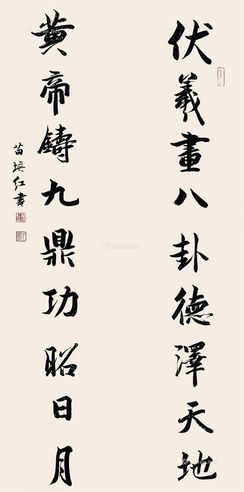 伏羲畫八卦德澤天地
黃帝鑄九鼎功昭日月
苗培红書